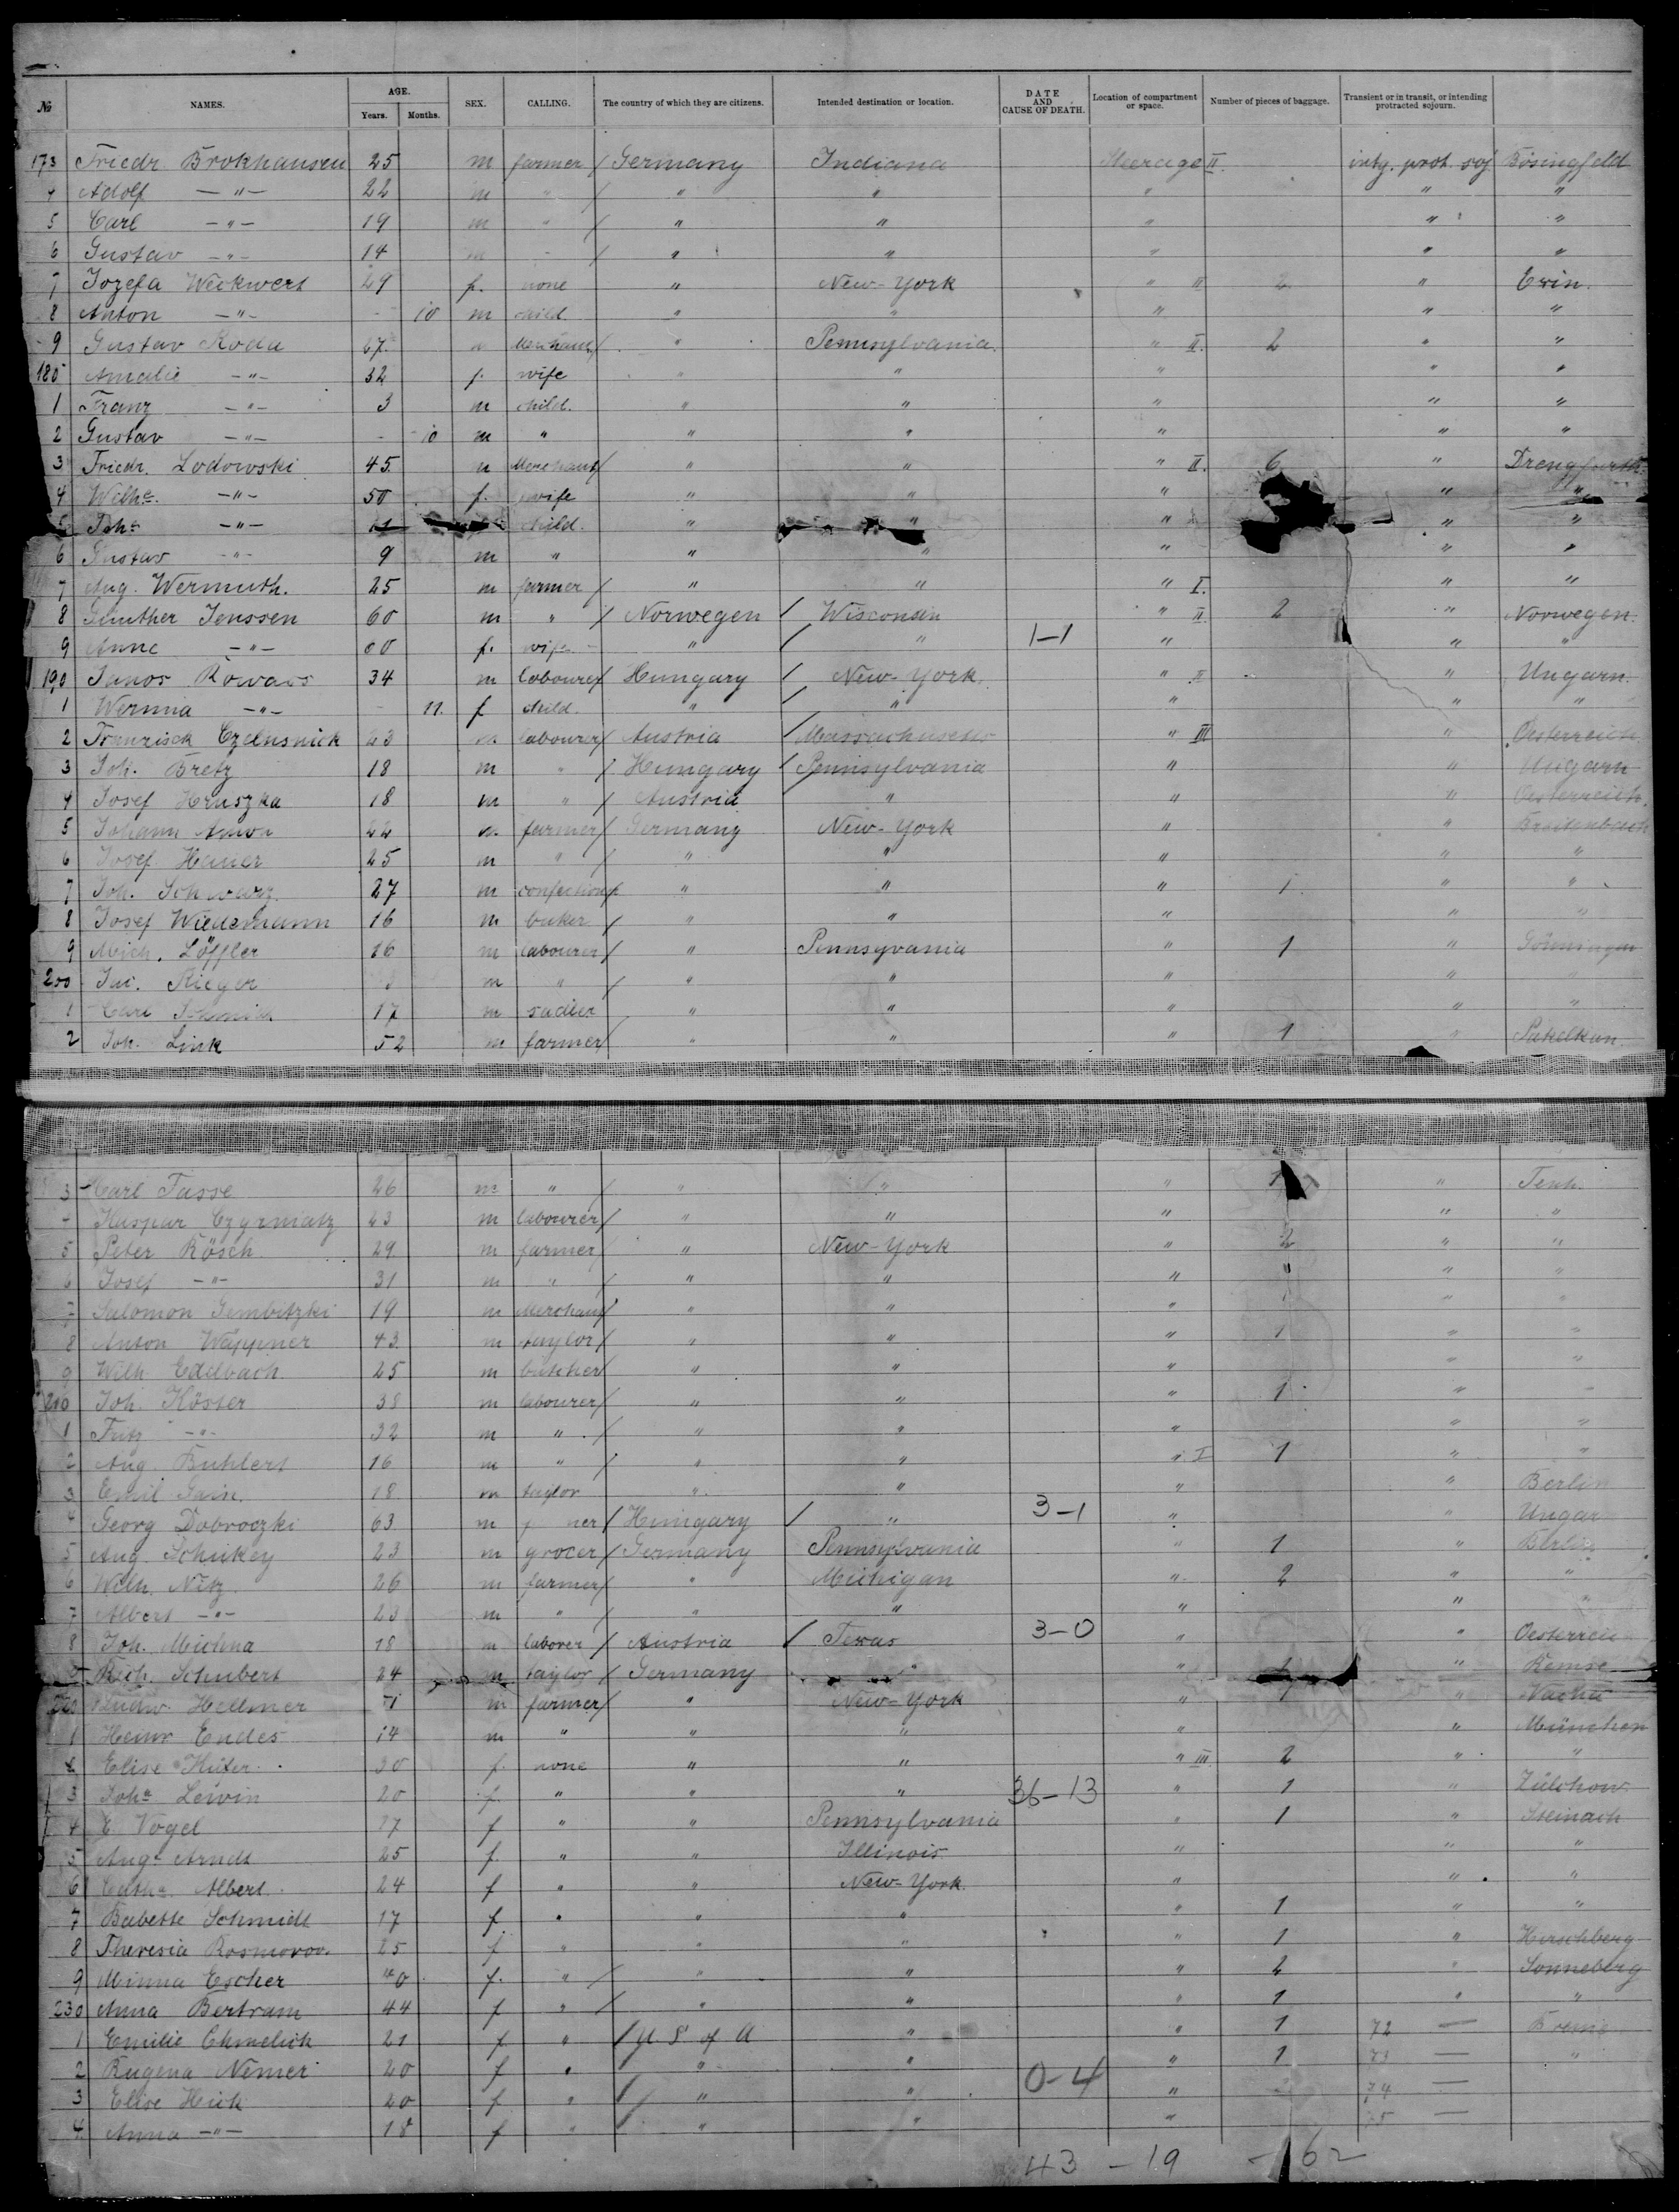 № NAMES. AGE. Years. Months. SEX. CALLING. The country of which they are citizens. Intended destination or location. DATE AND CAUSE OF DEATH. Location of compartment or space. Number of pieces of baggage. Transient or in transit, or intending protracted sojourn.
173 Friedr. Brokhausen 25 m farmer / Germany Indiana Steerage II. intg. prot. soj. Bösingfeld
4 Adolf —"— 22 m " / " " " " "
5 Carl —"— 19 m " / " " " " "
6 Gustav —"— 14 m - / " " " " "
7 Jozefa Weckwert 29 f. none " New-York " II 2 " Exin.
8 Anton —"— - 10 m child. " " " " "
9 Gustav Roda Merchant / " Pennsylvania. " II. 2 " "
180 Amalie —"— 32 f. wife " " " " "
1 Franz —"— 3 m child. " " " " "
2 Gustav —"— - 10 m " " " " " "
3 Friedr. Lodowski 45. m Merchant / " " " II. 6 " Drengfurth.
4 Wilhe. —"— 50 f. wife " " " " "
5 —"— 11 child. " " " " "
6 Gustav —"— 9 m " " " " " "
7 Aug. Wermuth. 25 m farmer / " " " I. " "
8 Günther Jenssen 60 m " / Norwegen / Wisconsin " II. 2 " Norwegen.
9 Anne —"— f. wife " / " 1-1 " " "
190 Janos 34 m labourer / Hungary / New-York. " II " Ungarn.
1 —"— - 11. f child. " / " " " "
2 Franzisck Czelusnick labourer / Austria / Massachusetts " III " Oesterreich.
3 Joh. Bretz 18 m " / Hungary / Pennsylvania " " Ungarn
4 Josef Hruszka 18 m " / Austria " " " Oesterreich.
5 Johann Amon 22 m farmer / Germany New-York " " Breitenbach
6 Josef Hauer 25 m " / " " " " "
7 Joh. Schwarz 27 m " " " 1 " "
8 Josef Wiedemann 16 m baker / " " " " "
9 Mich. Löffler 16 m labourer / " Pennsyvania " 1 " Gönningen
200 Rieger m " / " " " " "
1 Carl Schmid 17 m sadler " " " " "
2 Joh. Link 52 m farmer / " " " 1 "
3 Carl Tasse 26 m " / " " " "
Kaspar Czyrniatz 23 m labourer / " " " 2 " "
5 Peter Rösch 29 m farmer / " New-York " 2 " "
6 Josef —"— 31 m " / " " " " " "
7 Salomon Gembitzki 19 m Merchant / " " " " " "
8 Anton Wäppner 43. m taylor / " " " 1 " "
9 Wilh. Edelbach 25 m butcher / " " " " "
210 Joh. Köster 38 m labourer / " " " 1 " "
1 Fritz —"— 32 m " / " " " " "
2 Aug. Buhlert 16 m " / " " " I 1 " "
3 Emil 18 m taylor " " " " Berlin
4 Georg Dobroczki 63 m / Hungary / " 3-1 " " Ungarn
5 Aug. Schukey 23 m grocer / Germany Pennsylvania " 1 " Berlin
6 Wilh. Nitz 26 m farmer / " Michigan " 2 " "
7 Albert —"— 23 m " / " " " " "
8 Joh. Michna 18 m laborer / Austria / Texas 3-0 " " Oesterreich
9 Rich. Schubert 24 m taylor / Germany " " "
220 Ludw. Hellmer m farmer / " New-York " " Vacha
1 Heinr Endes 14 m " " " " " München
2 Elise Küter 30 f. none " " " III 2 " "
3 Johe Lewin 20 f. " " " 36-13 " 1 " Züllchow
4 E. Vogel 27 f " " Pennsylvania " 1 " Steinach
5 Auge Arndt 25 f. " " Illinois " " "
6 Albert 24 f " " New-York. " " "
7 Babette Schmidt 17 f " " " " 1 " "
8 Theresia 25 f " " " " 1 " Hirschberg
9 Minna Escher f. " / " " " 2 " Sonneberg
230 Anna Bertram 44 f " / " " " 1 " "
1 Emilie Chmelick 21 f. " / U S of A " " 1 72 —
2 Rugena Nemei 20 f " " " 0-4 " 1 73 — "
3 Elise Hick 20 f " / " " " 74 —
4 Anna —"— 18 f " / " " " 75 —
43 - 19 - 62